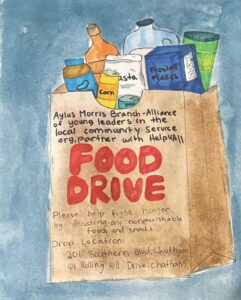 Pasta
Frosted
Flakes
Corn
Aylus Morris Branch-Alliance
of young leaders in the
local community service
org, Partner with Help4All
FOOD
DRIVE
Please help fight hunger
by donating any nonperishable
foods and snacks
Drop Location:
201 Southern Blvd, Chatham
44 Rolling Hill Drive, Chatham